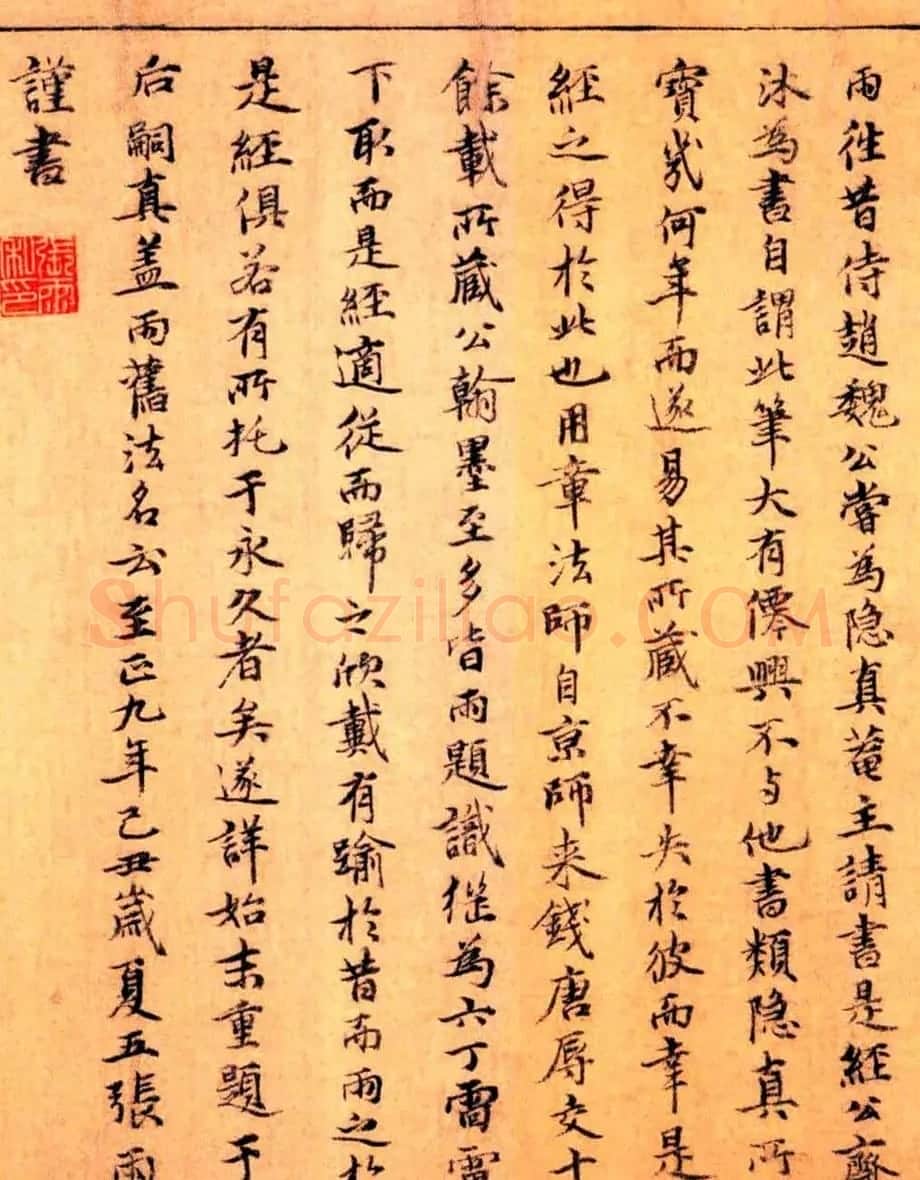 雨往昔侍趙魏公嘗為隐真菴主請書是經公齋
沐為書自謂此筆大有僊興不与他書類隐真所
寶岁何年而遂易其所藏不幸失於彼而幸是
經之得於此也用章法師自京師来錢唐辱交十
餘載所藏公翰墨至多皆雨題識從為六丁雷電
下取而是經適從而歸之欣戴有踰於昔而雨之於
是經俱若有所托于永久者矣遂詳始末重題于
后嗣真盖雨舊法名云至正九年己丑歲夏五張雨
謹書
Shufaziliao.COM